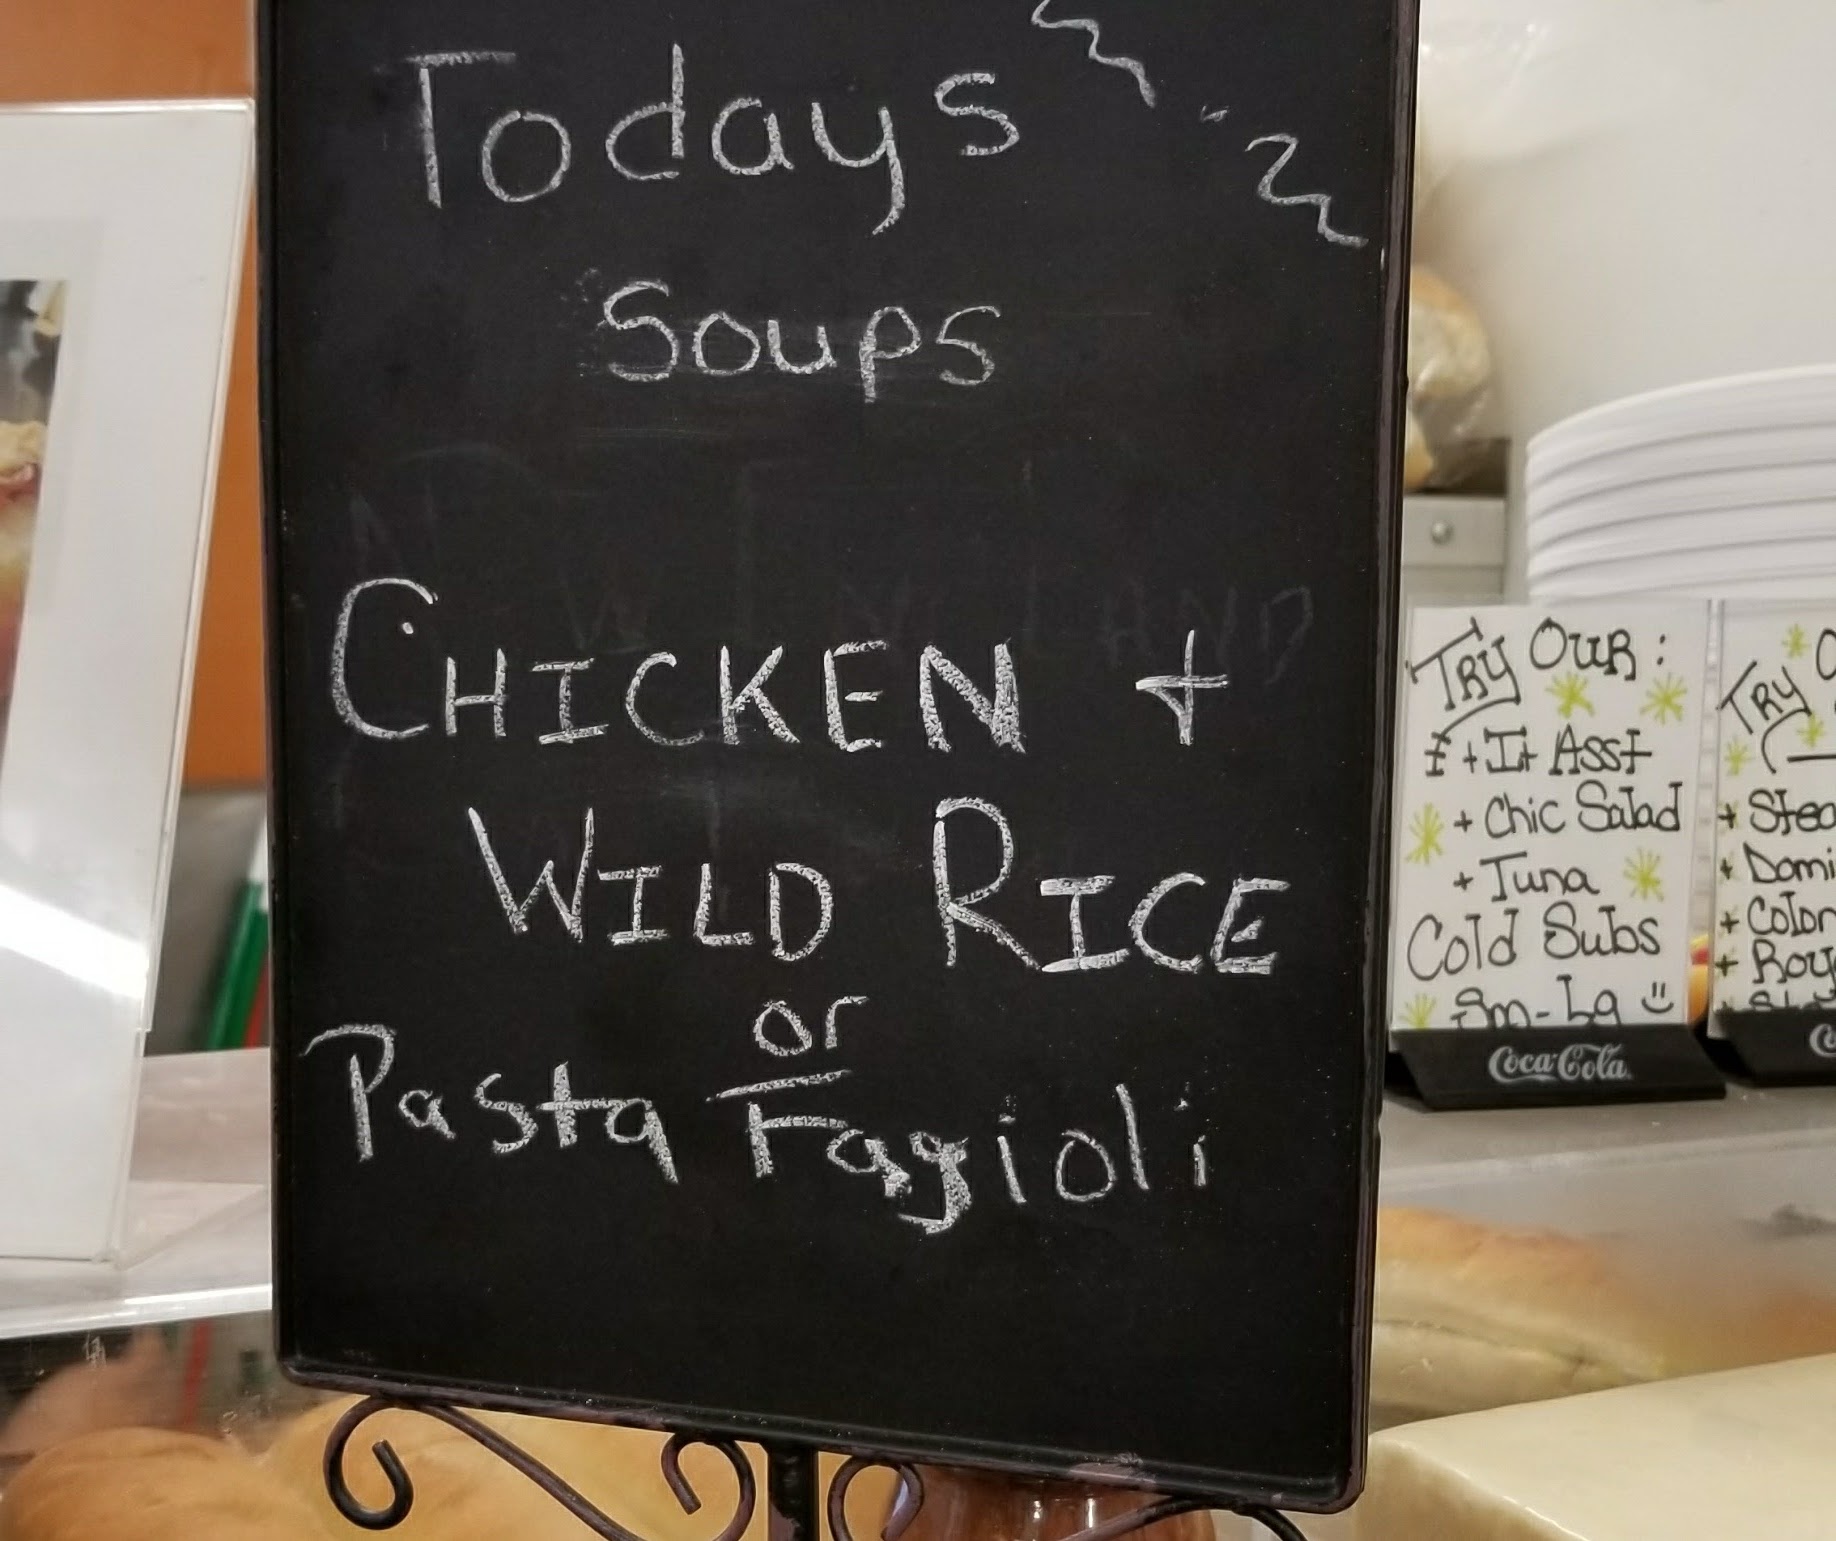 Todays
Soups
CHICKEN +
WILD RICE
or
Pasta Fagioli
TRY OUR:
+ It Asst
+ Chic Salad
+ Tuna
Cold Subs
Sm-Lg
Coca-Cola
TRY
+ Stea
+ Domi
+ Colon
+ Roy